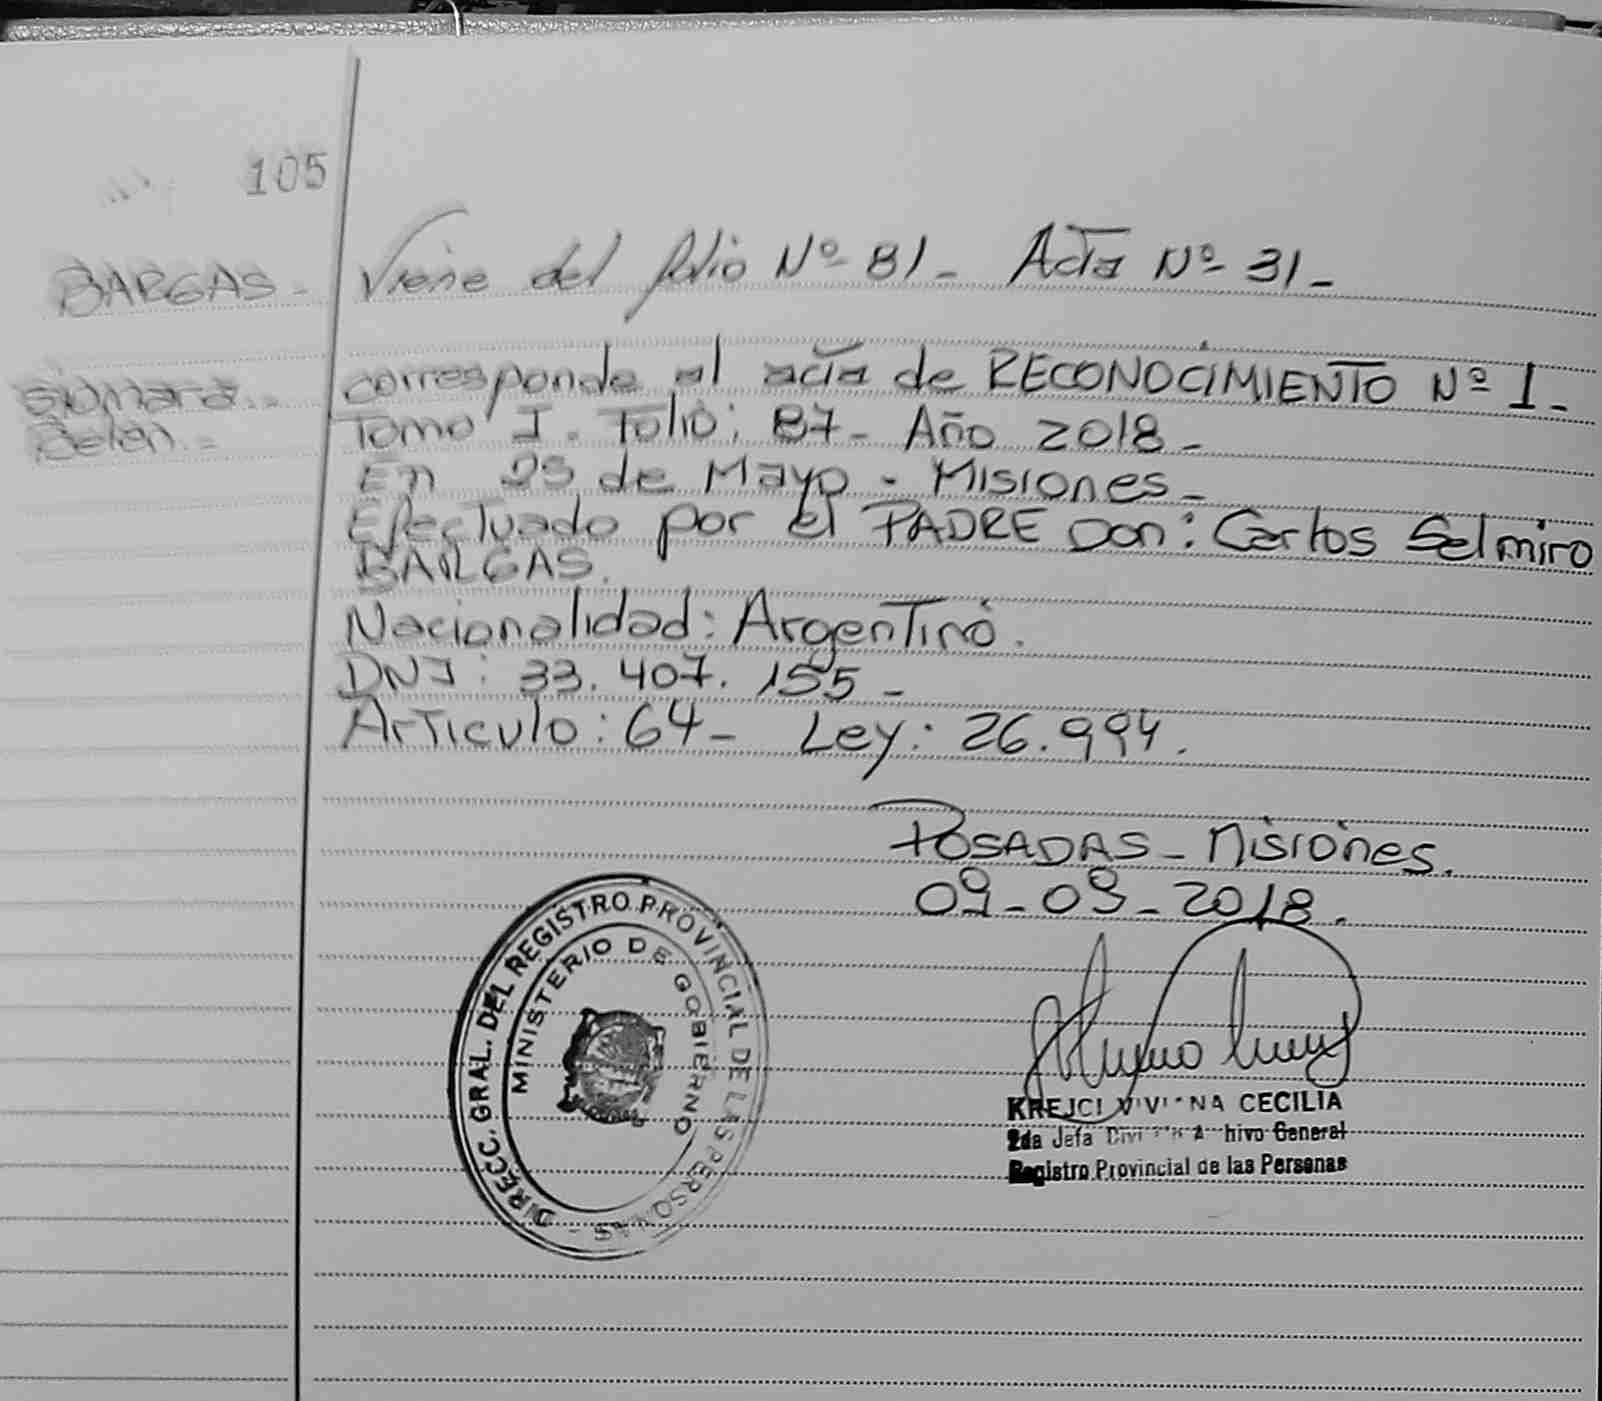 105
BARGAS - Viene del folio Nº 81 - Acta Nº 31 -
Siomara.- corresponde al acta de RECONOCIMIENTO Nº 1 -
Belen.- Tomo I. Folio: 87 - Año 2018 -
En 25 de Mayo - Misiones -
Efectuado por el PADRE Don: Carlos Selmiro
BARGAS.
Nacionalidad: Argentino.
DNI: 33.407.155 -
Articulo: 64 - Ley: 26.994.
POSADAS - Misiones.
09-09-2018.
DIRECC. GRAL. DEL REGISTRO PROVINCIAL DE LAS PERSONAS -
MINISTERIO DE GOBIERNO
KREJCI VIVIANA CECILIA
2da Jefa General
Registro Provincial de las Personas